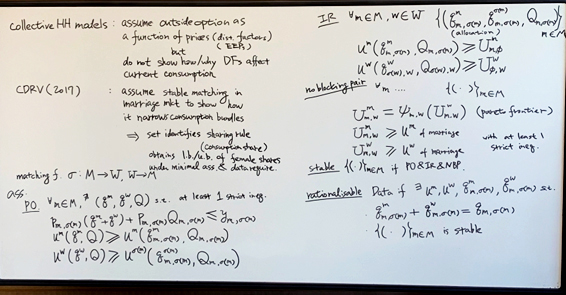 Collective HH models : assume outside option as
a function of prices (dist. factors)
(EEPs)
but
do not show how/why DFs affect
current consumption
CDRV (2017) : assume stable matching in
marriage mkt to show how
it narrows consumption bundles
⇒ set identifies sharing rule
(consumption share)
obtains l.b./u.b. of female shares
under minimal ass. & data require.
matching f. σ: M→W, W→M
ass.
PO ∀m∈M, ∄ (g^m, g^w, Q) s.t. at least 1 strict ineq.
P_{m,σ(m)} (g^m + g^w) + P_{m,σ(m)} Q_{m,σ(m)} ≤ y_{m,σ(m)}
u^m(g^m, Q) ≥ u^m(g^m_{m,σ(m)}, Q_{m,σ(m)})
u^w(g^w, Q) ≥ u^{σ(m)}(g^{σ(m)}_{m,σ(m)}, Q_{m,σ(m)})
IR ∀m∈M, w∈W {(g^m_{m,σ(m)}, g^{σ(m)}_{m,σ(m)}, Q_{m,σ(m)})}_{m∈M}
(allocation)
u^m(g^m_{m,σ(m)}, Q_{m,σ(m)}) ≥ U^m_{m,ø}
u^w(g^w_{σ(w),w}, Q_{σ(w),w}) ≥ U^w_{ø,w}
no blocking pair ∀m .... {(·)}_{m∈M}
U^m_{m,w} = Ψ_{m,w}(U^w_{m,w}) (pareto frontier)
U^m_{m,w} ≥ u^m of marriage with at least 1
U^w_{m,w} ≥ u^w of marriage strict ineq.
stable {(·)}_{m∈M} if PO & IR & NBP.
rationalisable Data if ∃ u^m, u^w, g^m_{m,σ(m)}, g^w_{m,σ(m)} s.t.
g^m_{m,σ(m)} + g^w_{m,σ(m)} = g_{m,σ(m)}
{(·)}_{m∈M} is stable